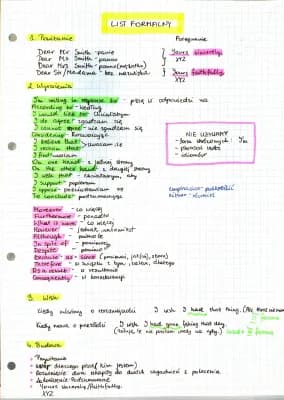 LIST FORMALNY
1. Powitanie Pożegnanie
Dear Mr Smith - panie
Dear Ms Smith - panno
Dear Mrs Smith - pani (mężatka)
Yours sincerely,
XYZ
Dear Sir/Madame - bez nazwiska
Yours faithfully,
XYZ
2. Wyrażenia
I'm writing in response to - piszę w odpowiedzi na
According to - według
I would like to - chciałabym
I do agree - zgadzam się
I cannot agree - nie zgadzam się
Considering - Rozważając
I believe that
I reckon that
- uważam że
I find - uważam
On one hand - z jednej strony
On the other hand - z drugiej strony
I wish that - chciałabym, aby
I support - popieram
I oppose - przeciwstawiam się
To conclude - podsumowując
NIE UŻYWAMY
- form skróconych I'm
- phrasal verbs
- idiomów
emphasize - podkreślić
Moreover - co więcej
Furthermore - ponadto
What is more - co więcej
However - jednak, natomiast
Although - pomimo że
In spite of - pomimo
Despite - pomimo
Because, as, since (ponieważ, jako że)
Therefore - w związku z tym, zatem, dlatego
As a result - w rezultacie
Consequently - w konsekwencji
3. Wish
Kiedy mówimy o teraźniejszości I wish I had that thing.
Kiedy mowa o przeszłości I wish I had gone fishing that day.
4. Budowa
- Powitanie
- Wstęp dlaczego piszę
- Zakończenie Podsumowanie
- Yours sincerely/faithfully,
XYZ